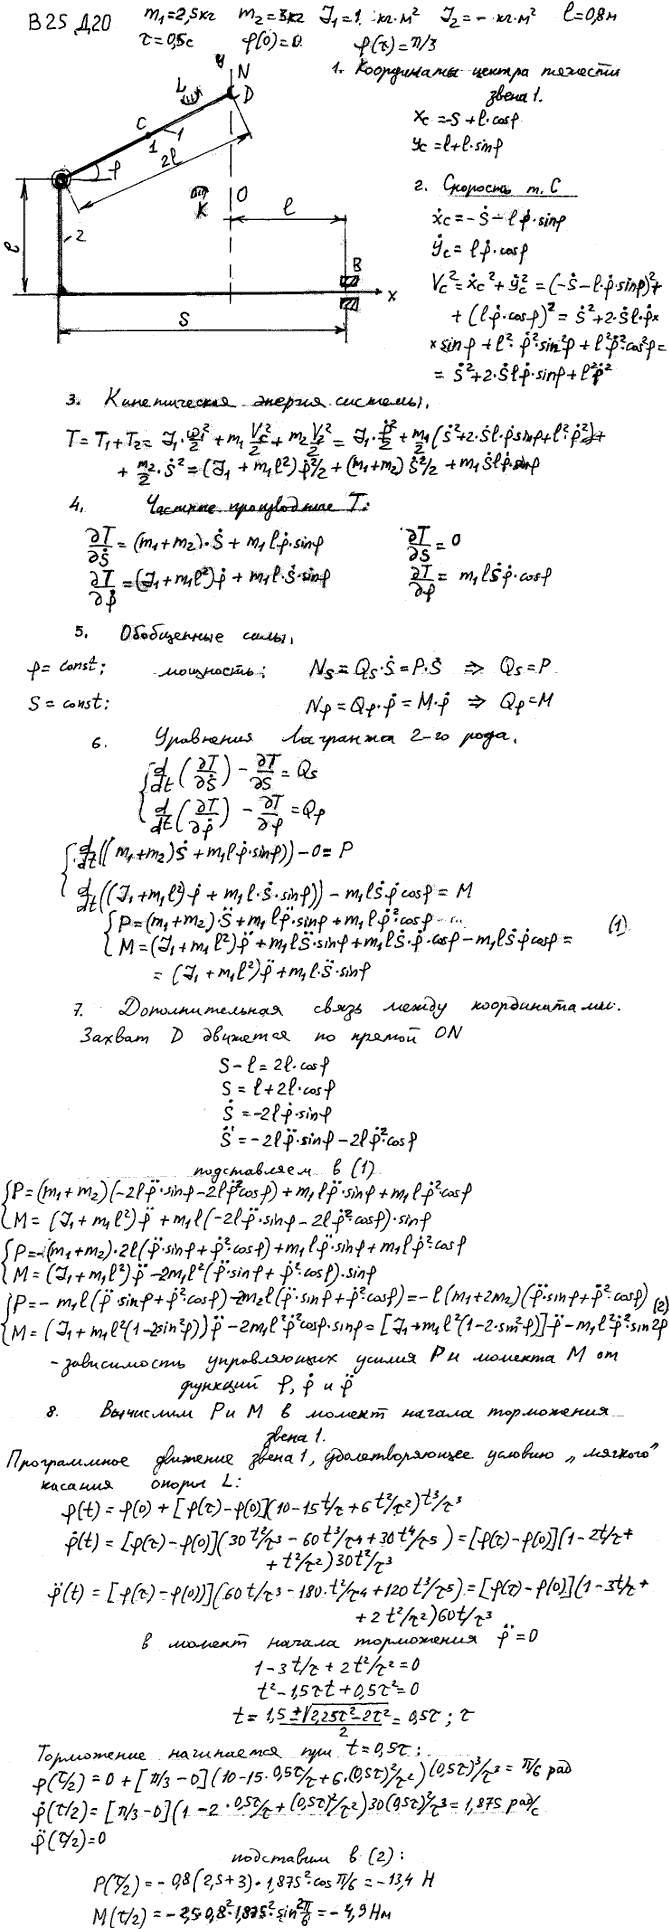 В25 Д20 m₁=2,5кг m₂=3кг J₁=1 кг·м² J₂=– кг·м² ℓ=0,8м
τ=0,5с φ(0)=0 φ(τ)=π/3
1. Координаты центра тяжести
звена 1.
x_c=-S+ℓ·cosφ
y_c=ℓ+ℓ·sinφ
2. Скорость т. C
ẋ_c=-Ṡ-ℓφ̇·sinφ
ẏ_c=ℓφ̇·cosφ
V_c²=ẋ_c²+ẏ_c²=(-Ṡ-ℓ·φ̇·sinφ)²+
+(ℓφ̇·cosφ)²=Ṡ²+2·Ṡℓ·φ̇×
×sinφ+ℓ²·φ̇²·sin²φ+ℓ²φ̇²·cos²φ=
=Ṡ²+2·Ṡℓφ̇·sinφ+ℓ²φ̇²
y N
L D
C
1 1
2ℓ
φ
O
K
ℓ
ℓ
2
B
x
S
3. Кинетическая энергия системы.
T=T₁+T₂=J₁·ω₁²/2+m₁V_c²/2+m₂V₂²/2=J₁·φ̇²/2+m₁/2(Ṡ²+2·Ṡℓ·φ̇sinφ+ℓ²·φ̇²)+
+m₂/2·Ṡ²=(J₁+m₁ℓ²)φ̇²/2+(m₁+m₂)Ṡ²/2+m₁Ṡℓφ̇·sinφ
4. Частные производные T:
∂T/∂Ṡ=(m₁+m₂)·Ṡ+m₁ℓφ̇·sinφ ∂T/∂S=0
∂T/∂φ̇=(J₁+m₁ℓ²)φ̇+m₁ℓ·Ṡ·sinφ ∂T/∂φ=m₁ℓṠφ̇·cosφ
5. Обобщенные силы.
φ=const; мощность: N_S=Q_S·Ṡ=P·Ṡ ⇒ Q_S=P
S=const: N_φ=Q_φ·φ̇=M·φ̇ ⇒ Q_φ=M
6. Уравнения Лагранжа 2-го рода.
{d/dt(∂T/∂Ṡ)-∂T/∂S=Q_S
{d/dt(∂T/∂φ̇)-∂T/∂φ=Q_φ
{d/dt((m₁+m₂)Ṡ+m₁ℓφ̇·sinφ))-0=P
{d/dt((J₁+m₁ℓ²)·φ̇+m₁ℓ·Ṡ·sinφ))-m₁ℓṠφ̇cosφ=M
{P=(m₁+m₂)·S̈+m₁ℓφ̈·sinφ+m₁ℓφ̇²·cosφ (1)
{M=(J₁+m₁ℓ²)φ̈+m₁ℓS̈·sinφ+m₁ℓṠ·φ̇·cosφ-m₁ℓṠφ̇cosφ=
=(J₁+m₁ℓ²)φ̈+m₁ℓ·S̈·sinφ
7. Дополнительная связь между координатами.
Захват D движется по прямой ON
S-ℓ=2ℓ·cosφ
S=ℓ+2ℓ·cosφ
Ṡ=-2ℓφ̇·sinφ
S̈=-2ℓφ̈·sinφ-2ℓφ̇²·cosφ
подставляем в (1)
{P=(m₁+m₂)(-2ℓφ̈·sinφ-2ℓφ̇²cosφ)+m₁ℓφ̈·sinφ+m₁ℓφ̇²cosφ
{M=(J₁+m₁ℓ²)φ̈+m₁ℓ(-2ℓφ̈·sinφ-2ℓφ̇²·cosφ)·sinφ
{P=-(m₁+m₂)·2ℓ(φ̈·sinφ+φ̇²·cosφ)+m₁ℓφ̈·sinφ+m₁ℓφ̇²·cosφ
{M=(J₁+m₁ℓ²)φ̈-2m₁ℓ²(φ̈·sinφ+φ̇²·cosφ)·sinφ
{P=-m₁ℓ(φ̈sinφ+φ̇²·cosφ)-2m₂ℓ(φ̈·sinφ+φ̇²·cosφ)=-ℓ(m₁+2m₂)(φ̈·sinφ+φ̇²·cosφ) (2)
{M=(J₁+m₁ℓ²(1-2sin²φ))φ̈-2m₁ℓ²φ̇²cosφ·sinφ=[J₁+m₁ℓ²(1-2·sin²φ)]·φ̈-m₁ℓ²φ̇²·sin2φ
-зависимость управляющих усилия P и момента M от
функций φ, φ̇ и φ̈
8. Вычислим P и M в момент начала торможения
звена 1.
Программное движение звена 1, удовлетворяющее условию „мягкого"
касания опоры L:
φ(t)=φ(0)+[φ(τ)-φ(0)](10-15t/τ+6t²/τ²)t³/τ³
φ̇(t)=[φ(τ)-φ(0)](30t²/τ³-60t³/τ⁴+30t⁴/τ⁵)=[φ(τ)-φ(0)](1-2t/τ+
+t²/τ²)30t²/τ³
φ̈(t)=[φ(τ)-φ(0))](60t/τ³-180·t²/τ⁴+120t³/τ⁵)=[φ(τ)-φ(0)](1-3t/τ+
+2t²/τ²)60t/τ³
в момент начала торможения φ̈=0
1-3t/τ+2t²/τ²=0
t²-1,5τt+0,5τ²=0
t=(1,5±√(2,25τ²-2τ²))/2=0,5τ; τ
Торможение начинается при t=0,5τ:
φ(τ/2)=0+[π/3-0](10-15·0,5τ/τ+6·(0,5τ)²/τ²)(0,5τ)³/τ³=π/6 рад
φ̇(τ/2)=[π/3-0](1-2·0,5τ/τ+(0,5τ)²/τ²)30(0,5τ)²/τ³=1,875 рад/с
φ̈(τ/2)=0
подставим в (2):
P(τ/2)=-0,8(2,5+3)·1,875²·cosπ/6=-13,4 Н
M(τ/2)=-2,5·0,8²·1,875²·sin2π/6=-4,9Нм